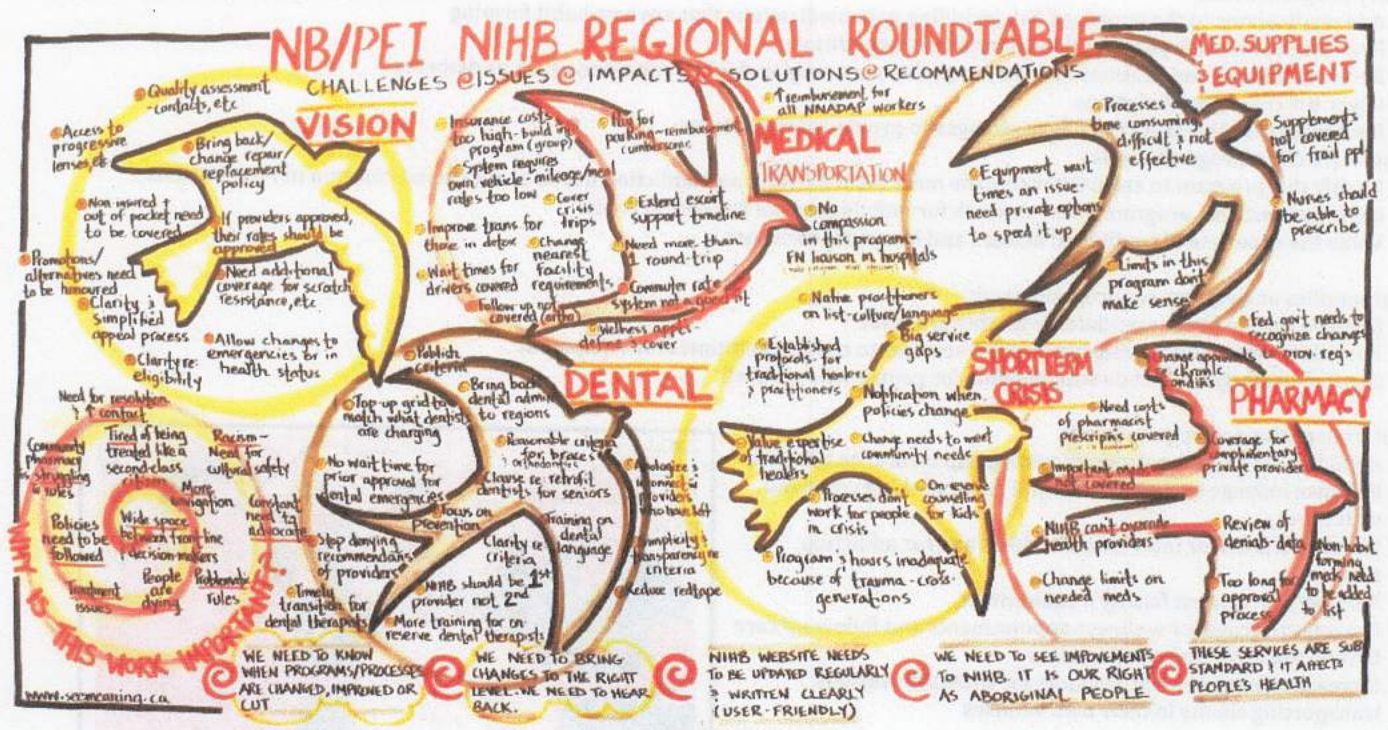 NB/PEI NIHB REGIONAL ROUNDTABLE
CHALLENGES @ ISSUES @ IMPACTS @ SOLUTIONS @ RECOMMENDATIONS
VISION
Quality assessment
-contacts, etc
Access to
progressive
lenses, etc
Bring back/
change repair/
replacement
policy
Non insured &
out of pocket need
to be covered
If providers approved,
their rates should be
approved
Promotions/
alternatives need
to be honoured
Need additional
coverage for scratch
resistance, etc
Clarity &
simplified
appeal process
Allow changes to
emergencies or in
health status
Clarity re:
eligibility
MEDICAL
TRANSPORTATION
↑ reimbursement for
all NNADAP workers
Insurance costs
too high-build into
program (group)
Plug for
parking-reimbursement
cumbersome
System requires
own vehicle-mileage/meal
rates too low
Cover
crisis
trips
Extend escort
support timeline
Improve trans for
those in detox
Change
nearest
facility
requirements
Need more than
1 round-trip
Wait times for
drivers covered
Commuter rate
system not a good fit
Follow up not
covered (ortho)
Wellness appt-
define & cover
No
compassion
in this program-
FN liaison in hospitals
MED. SUPPLIES
& EQUIPMENT
Processes are
time consuming,
difficult & not
effective
Supplements
not covered
for frail ppl
Equipment wait
times an issue-
need private options
to speed it up
Nurses should
be able to
prescribe
Limits in this
program don't
make sense
Fed. gov't needs to
recognize changes
to prov. reg's
DENTAL
Publish
criteria
Bring back
dental admin
to regions
Top-up grid to
match what dentists
are charging
Reasonable criteria
for braces &
orthodontics
No wait time for
prior approval for
dental emergencies
Clause re: retrofit
dentists for seniors
Apologize &
reconnect
providers
who have left
Focus on
prevention
Training on
dental
language
Clarity re
criteria
Stop denying
recommendations
of providers
Simplicity &
transparency re
criteria
NIHB should be 1st
provider not 2nd
Reduce red tape
Timely
transition for
dental therapists
More training for on-
reserve dental therapists
SHORT TERM
CRISIS
Native practitioners
on list-culture/language
Big service
gaps
Established
protocols for
traditional healers
& practitioners
Notification when
policies change
Value expertise
of traditional
healers
Change needs to meet
community needs
Processes don't
work for people
in crisis
On-reserve
counselling
for kids
Program & hours inadequate
because of trauma-cross-
generations
PHARMACY
Change approvals
re chronic
condi's
Need costs
of pharmacist
prescrip'ns covered
Coverage for
complimentary
private provider
Important meds
not covered
NIHB can't override
health providers
Review of
denials-data
Non-habit
forming
meds need
to be added
to list
Change limits on
needed meds
Too long for
approval
process
Need for resolution
& ↑ contact
Community
pharmacy
is struggling
w rules
Tired of being
treated like a
second-class
citizen
Racism-
Need for
cultural safety
More
navigation
Constant
need to
advocate
Policies
need to be
followed
Wide space
between front-line
& decision-makers
Treatment
issues
People
are
dying
Problematic
rules
WHY IS THIS WORK IMPORTANT?
WE NEED TO KNOW
WHEN PROGRAMS/PROCESSES
ARE CHANGED, IMPROVED OR
CUT
WE NEED TO BRING
CHANGES TO THE RIGHT
LEVEL. WE NEED TO HEAR
BACK.
NIHB WEBSITE NEEDS
TO BE UPDATED REGULARLY
& WRITTEN CLEARLY
(USER-FRIENDLY)
WE NEED TO SEE IMPOVEMENTS
TO NIHB. IT IS OUR RIGHT
AS ABORIGINAL PEOPLE.
THESE SERVICES ARE SUB
STANDARD & IT AFFECTS
PEOPLE'S HEALTH